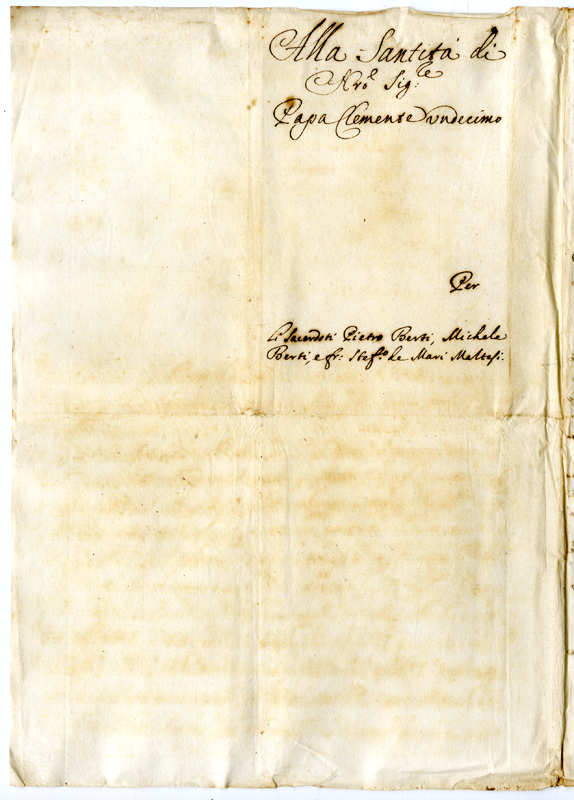 Alla Santità di
Nro̅ Sig:re
Papa Clemente Undecimo
Per
Li Sacerdoti Pietro Berti, Michele
Berti, e fr: Stefo de Mari Maltesi.